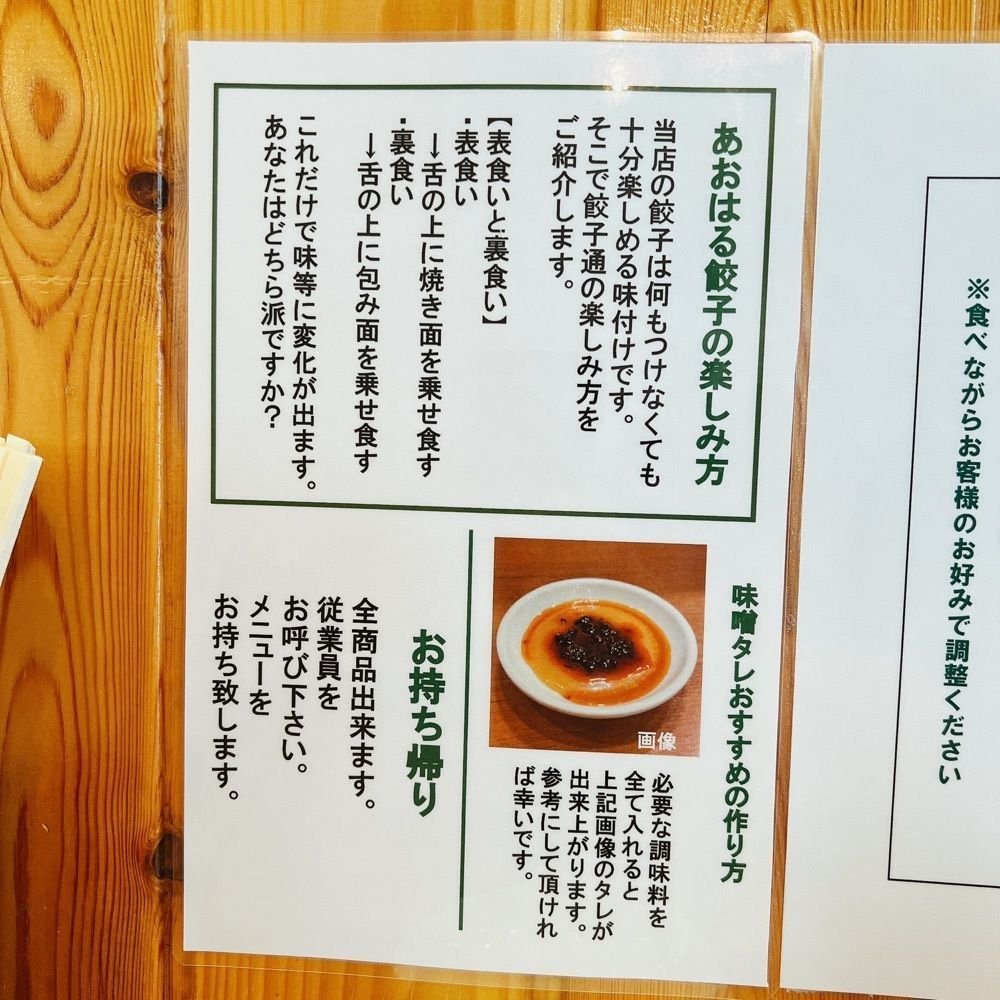 あおはる餃子の楽しみ方
当店の餃子は何もつけなくても
十分楽しめる味付けです。
そこで餃子通の楽しみ方を
ご紹介します。
【表食いと裏食い】
・表食い
→舌の上に焼き面を乗せ食す
・裏食い
→舌の上に包み面を乗せ食す
これだけで味等に変化が出ます。
あなたはどちら派ですか？
味噌タレおすすめの作り方
画像
必要な調味料を
全て入れると
上記画像のタレが
出来上がります。
参考にして頂けれ
ば幸いです。
お持ち帰り
全商品出来ます。
従業員を
お呼び下さい。
メニューを
お持ち致します。
※食べながらお客様のお好みで調整ください